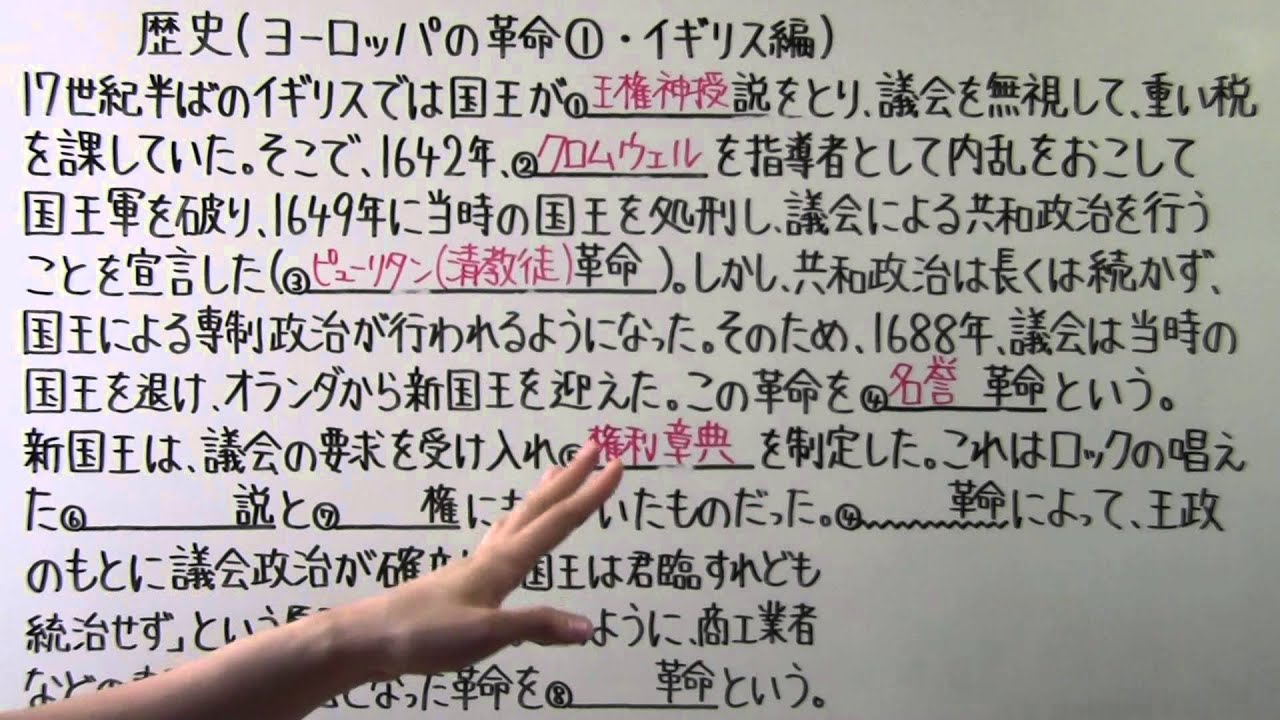 歴史(ヨーロッパの革命①・イギリス編)
17世紀半ばのイギリスでは国王が①王権神授説をとり、議会を無視して、重い税
を課していた。そこで、1642年、②クロムウェルを指導者として内乱をおこして
国王軍を破り、1649年に当時の国王を処刑し、議会による共和政治を行う
ことを宣言した(③ピューリタン(清教徒)革命)。しかし、共和政治は長くは続かず、
国王による専制政治が行われるようになった。そのため、1688年、議会は当時の
国王を退け、オランダから新国王を迎えた。この革命を④名誉 革命という。
新国王は、議会の要求を受け入れ⑤権利章典を制定した。これはロックの唱え
た⑥ 説と⑦ 権に いたものだった。④ 革命によって、王政
のもとに議会政治が確立 国王は君臨すれども
統治せず」という ように、商工業者
などの となった革命を⑧ 革命という。